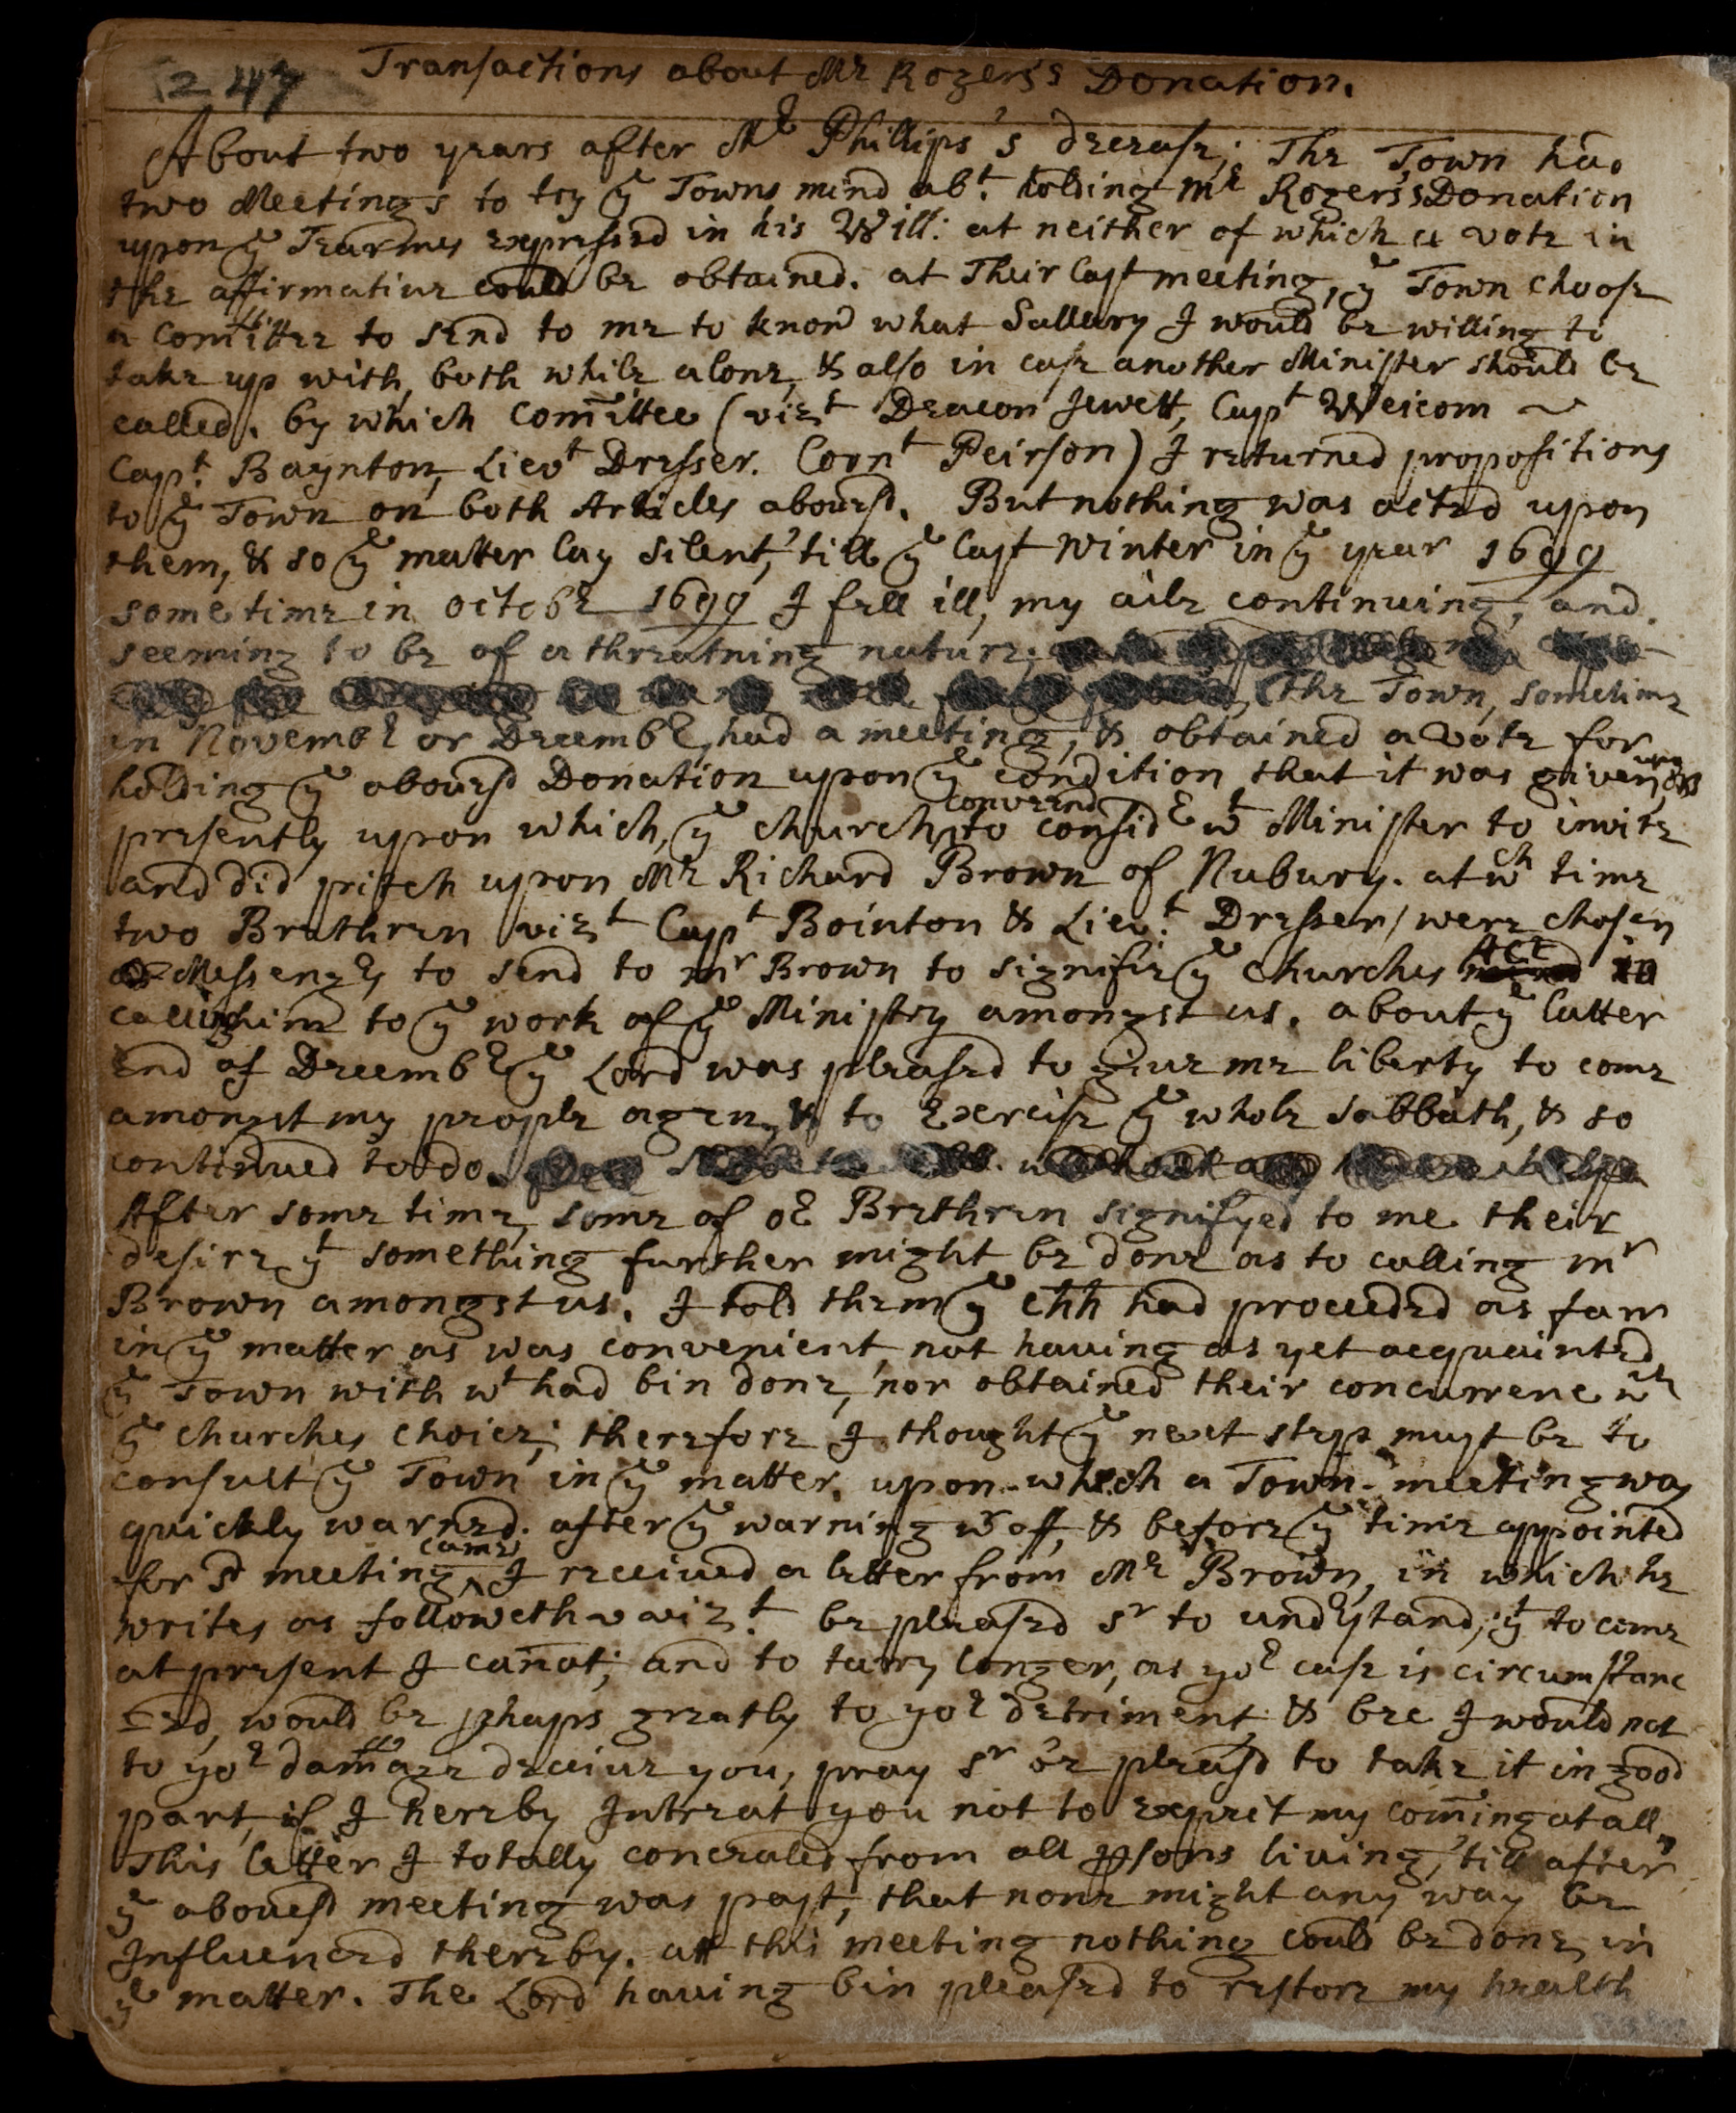 247 Transactions about Mr Rogers's Donation.
About two years after Mr Phillips's decease; The Town had
two Meetings to try ye Towns mind abt. holding Mr Rogers's Donation
upon ye Tearmes expressed in his Will: at neither of which a vote in
the affirmative could be obtained. at Their last meeting, ye Town choose
a Comittee to send to me to know what Sallary I would be willing to
take up with, both while alone, & also in case another Minister should be
called. by which Comittee (vizt Deacon Jewett, Capt Weicom ~
Capt. Baynton, Lievt Dresser. Cornt Peirson) I returned propositions
to ye Town on both Articles abovesd. But nothing was acted upon
them, & so ye matter lay silent, 'till ye last winter in ye year 1699
some time in octobr 1699 I fell ill, my aile continuing, and
seeming to be of a threatning nature;
the Town, sometime
in Novembr or Decembr, had a meeting, & obtained a Vote for
holding ye abovesd Donation upon ye condition that it was given upon
presently upon which, ye church convened to considr wt Minister to invite
and did pitch upon Mr Richard Brown of Nubury. at wch time
two Brethren vizt Capt Bointon & Lievt. Dresser, were chosen
as Messengrs to send to mr Brown to signifie ye Churches Act in
calling him to ye work of ye Ministry amongst us. about ye latter
End of Decembr ye Lord was pleased to give me liberty to come
amongst my people agen, & to Exercise ye whole sabbath, & so
continued to do.
After some time, some of or Brethren signifyed to me their
desire yt something further might be done as to calling mr
Brown amongst us. I told them ye chh had proceeded as farr
in ye matter as was convenient, not having as yet acquainted
ye Town with wt had bin done, nor obtained their concurrenc wth
ye churches choice; therefore I thought ye next step must be to
consult ye Town in ye matter. upon which a Town-meeting was
quickly warned. after ye warning wrof, & before ye time appointed
for sd meeting came, I received a letter from Mr Brown, in which he
writes as followeth vizt. be pleased sr to undrstand, yt to come
at present I canot; and to tarry longer, as yor case is circumstanc
Ced, would be phaps greatly to yor detriment, & bec I would not
to yor damage deceive you, pray sr be pleasd to take it in good
part, if I hereby Intreat you not to expect my coming at all,
This letter I totally concealed from all psons living, 'till after
ye abovesd meeting was past, that none might any way be
Influenced thereby. att this meeting nothing could be done in
ye matter. The Lord having bin pleased to restore my health